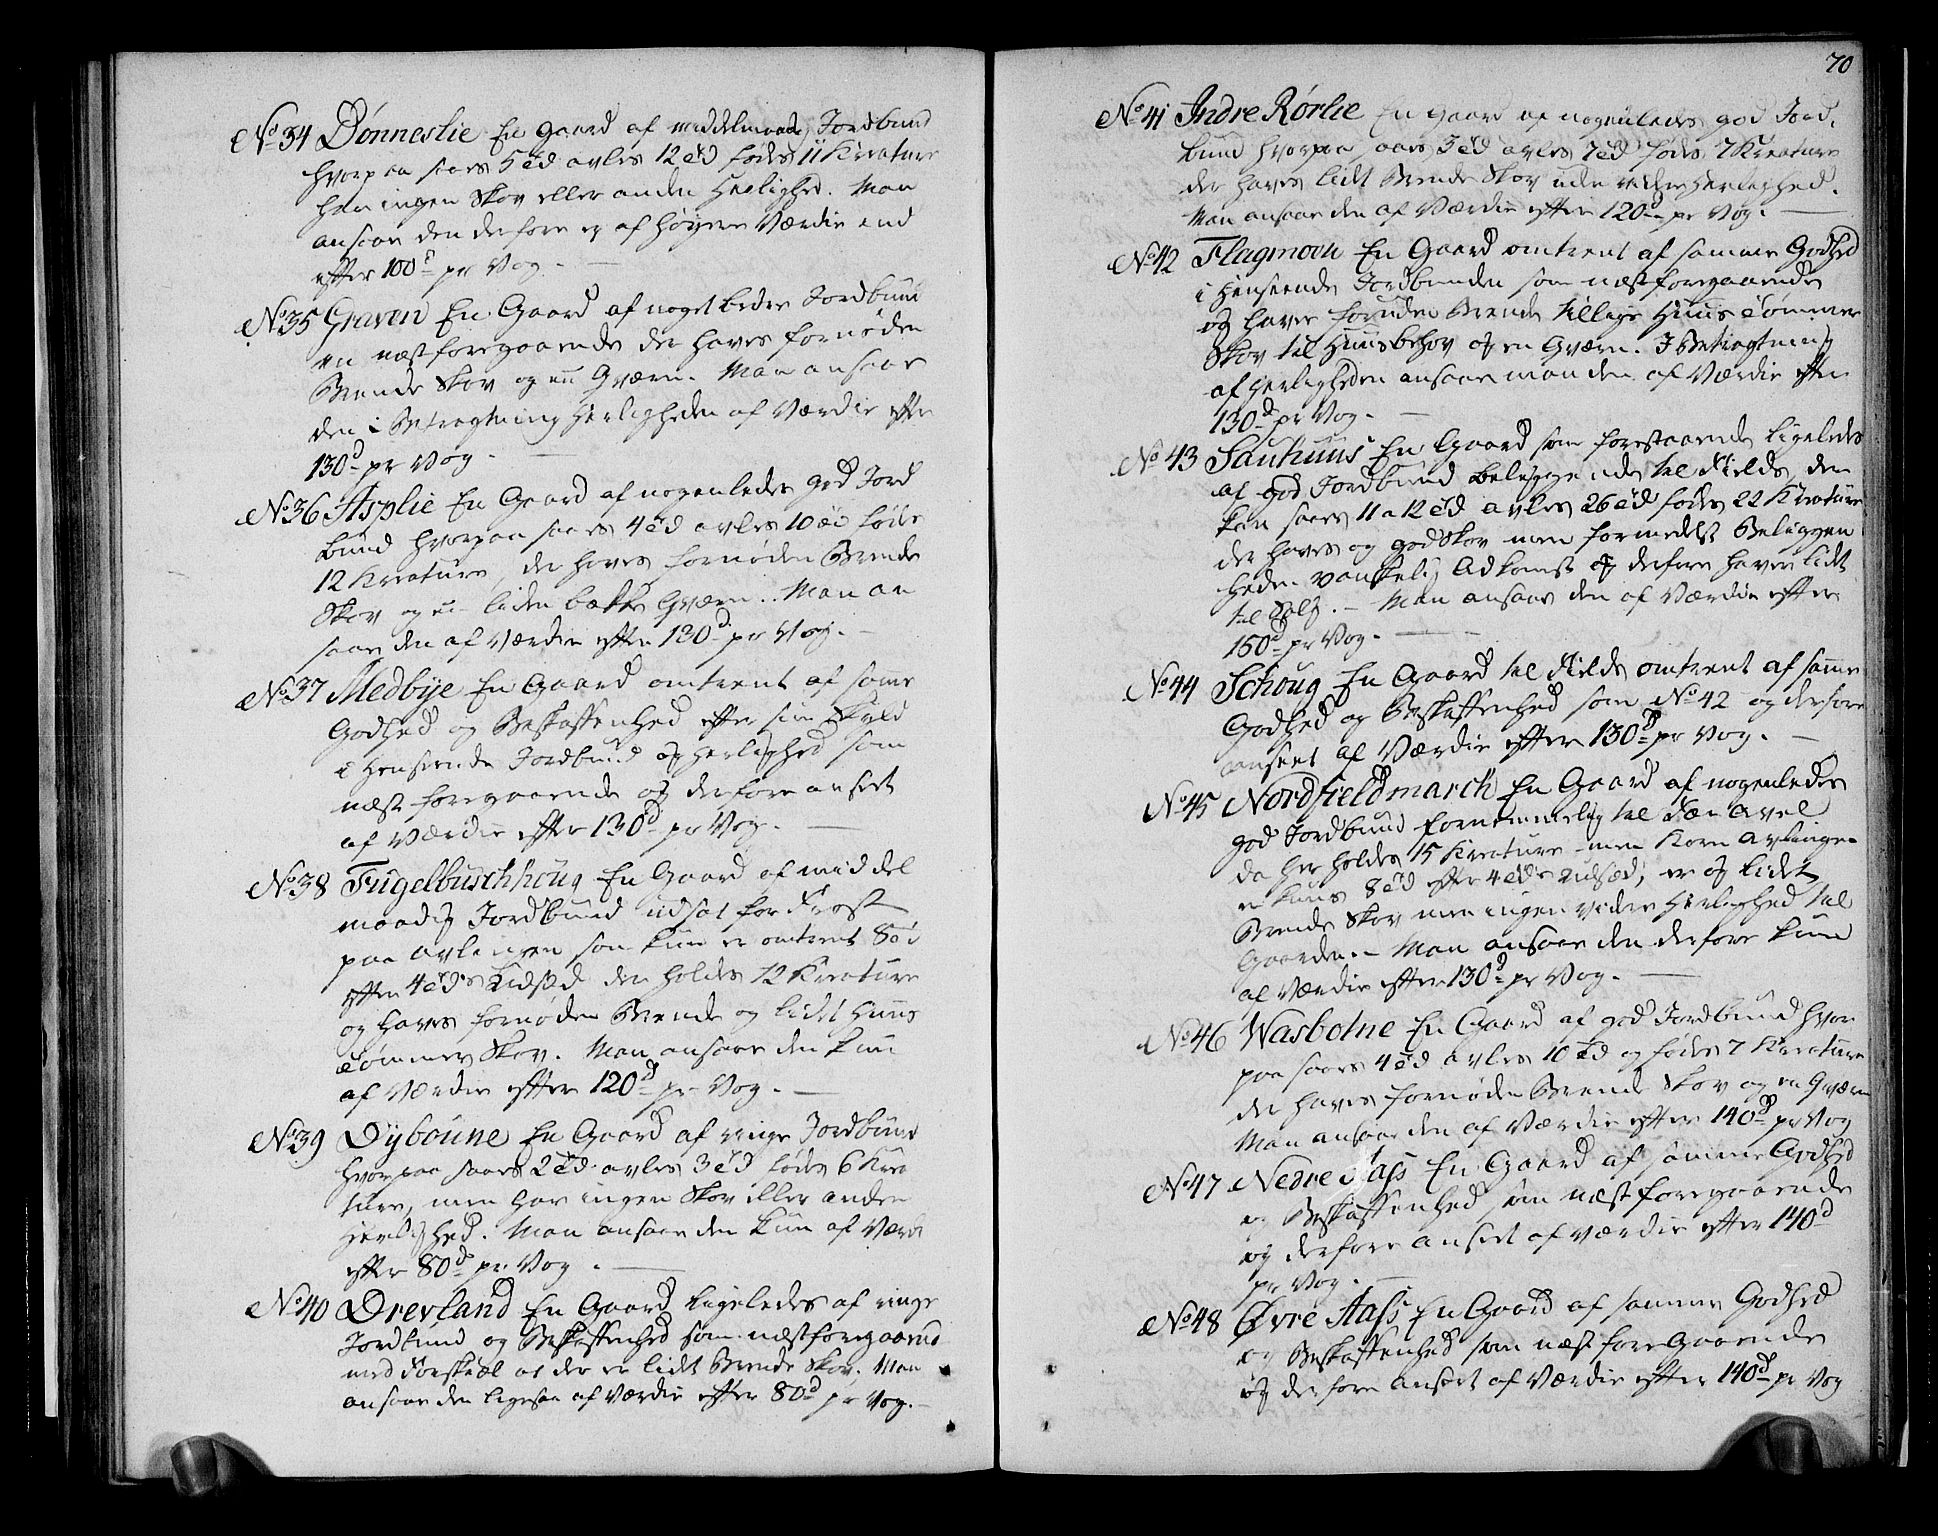 No 34 Dønneslie En Gaard af middelmaadig Jordbund
hvorpaa saaes 5 td avles 12 td fødes 11 Kreature
har ingen Skov eller anden Herlighed. Man
ansaae den derfore ej af høyere Værdie end
efter 100d pr Vog. —
No 35 Graven En Gaard af noget bedre Jordbund
en næstforegaaende der haves fornøden
Brende Skov og en Qværn. Man ansaae
den i Betragtning Herligheden af Værdie efter
130d pr Vog. —
No 36 Asplie En Gaard af nogenledes god Jord
bund hvorpaa saaes 4 td avles 10 td føder
12 Kreature, der haves fornøden Brende
Skov og en liden bække Qværn. Man an
saae den af Værdie efter 130d pr Vog. —
No 37 Medbye En Gaard omtrent af samme
Godhed og Beskaffenhed efter sin Skyld
i Henseende Jordbund og herlighed som
næst foregaaende og derfore anseet
af Værdie efter 130d pr Vog. —
No 38 Fugelbuschhoug En Gaard af middel
maadig Jordbund udsat for Frost
paa avlingen som kun er omtrent 8 td
efter 4 td's Udsæd der holdes 12 Kreature
og haves fornøden Brende og lidt Huus
tømmer Skov. Man ansaae den kun
af Værdie efter 120d pr Vog. —
No 39 Dyboune En Gaard af ringe Jordbund
hvorpaa saaes 2 td avles 3 td fødes 6 Krea
ture, men har ingen Skov eller anden
Herlighed. Man ansaae den kun af Værdie
efter 80d pr Vog. —
No 40 Drevland En Gaard ligeledes af ringe
Jordbund og Beskaffenhed som næstforegaaende
med Forskiæl at der er lidt Brende Skov. Man
ansaae den ligesaa af Værdie efter 80d pr Vog. —
70
No 41 Indre Rørlie En Gaard af nogenledes god Jord,
bund hvorpaa saaes 3 td avles 7 td fødes 7 Kreature
der haves lidt Brende Skov uden videre Herlighed.
Man ansaae den af Værdie efter 120d pr Vog. —
No 42 Flagmoen En Gaard omtrent af samme Godhed
i Henseende Jordbunden som næstforegaaende
og haver foruden Brende tillige Huus Tømmer
Skov til Huusbehov og en Qværn. I Betragtning
af Herligheden ansaae man den af Værdie efter
130d pr Vog. —
No 43 Sauhuus En Gaard som forestaaende ligeledes
af god Jordbund beliggende til Fields, den
kan saaes 11 a 12 td avles 26 td fødes 22 Kreature
der haves og god Skov men formedelst Beliggen
heden vanskelig Adkomst og derfore haver lidt
til Salg. — Man ansaae den af Værdie efter
150d pr Vog. —
No 44 Schoug En Gaard til Fields omtrent af samme
Godhed og Beskaffenhed som No 42 og derfore
anseet af Værdie efter 130d pr Vog. —
No 45 Nordfieldmarch En Gaard af nogenledes
god Jordbund fornemmelig til Fæe Avel
da her holdes 15 Kreature men Korn Avlingen
er kuns 8 td efter 4 td's Udsæd, er og lidt
Brende Skov men ingen videre Herlighed til
Gaarden. — Man ansaae den derfore kun
al Værdie efter 130d pr Vog. —
No 46 Wasbotne En Gaard af god Jordbund hvor
paa saaes 4 td avles 10 td og fødes 7 Kreature
der haves fornøden Brende Skov og en Qværn
Man ansaae den af Værdie efter 140d pr Vog
No 47 Nedre Aass En Gaard af samme Godhed
og Beskaffenhed som næstforegaaende
og derfore anseet af Værdie efter 140d
pr Vog. —
No 48 Øvre Aass En Gaard af samme Godhed
og Beskaffenhed som næst foregaaende
og derfore anseet af Værdie efter 140d pr Vog